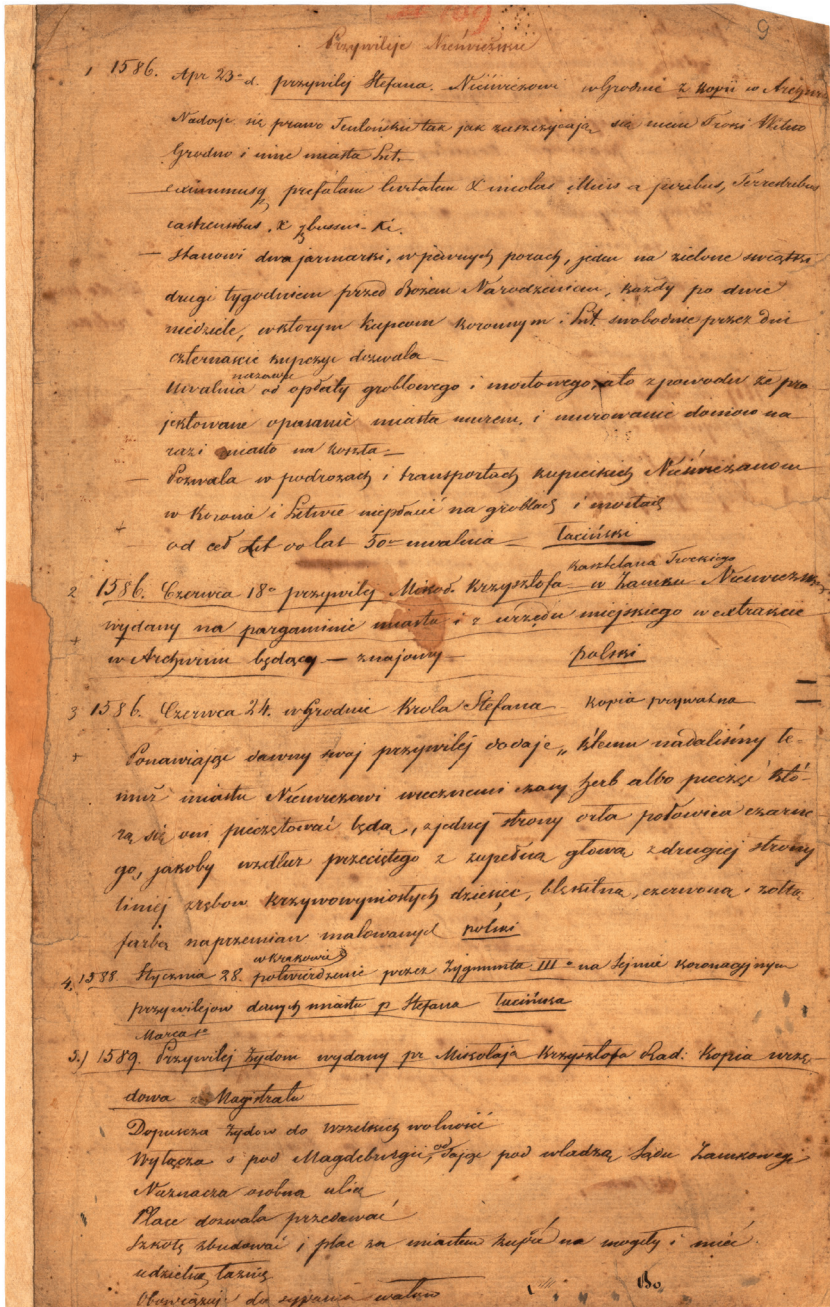 9
Przywileje Nieświezkie
1 1586. Apr 23 d. przywilej Stefana. Nieświezowi w Grodnie z kopii w Archiwum
Nadaje się prawo Teutońskie tak jak zaszczycają się niem Troki Wilno
Grodno i inne miasta Lit.
prefatam a Terrestribus
castrensibus
— Stanowi dwa jarmarki, w pewnych porach, jeden na zielone swiątki
drugi tygodniem przed Bożem Narodzeniem, każdy po dwie
niedziele, w ktorym kupcom koronnym i Lit. swobodnie przez dni
czternascie kupczyc dozwala —
nazawsze
Uwalnia od opłaty groblowego i mostowego, a to z powodu że pro
jektowane opasanie miasta murem, i murowanie domow na
razi miasto na koszta —
— Pozwala w podrozach i transportach kupieckich Nieświeżanom
w Korona i Litwie niepłacić na groblach i mostach
+ od ceł Lit do lat 50 uwalnia — łaciński
kasztelana Trockiego
2 1586. Czerwca 18 przywilej Mikoł. Krzysztofa w Zamku Nieswiezskim
wydany na pargaminie miastu i z urzędu miejskiego w extrakcie
+ w Archiwum będący — znajomy — polski
3 1586. Czerwca 24. w Grodnie Krola Stefana kopia prywatna =
+ Ponawiając dawny swoj przywilej dodaje „ktemu nadaliśmy te-
muż miastu Nieswiezowi wiecznemi czasy herb albo pieczęć któ-
rą się oni pieczętować będą, z jednej strony orła połowica czarne-
go, jakoby wzdłuz przeciętego z zupełną głową z drugiej strony
liniej zrębow krzywowyniosłych dziesięc, błękitną, czerwoną i zołtą
farbą naprzemian malowanych polski
w Krakowie
4. 1588. Stycznia 28. potwierdzenie przez Zygmunta III na Sejmie koronacyjnym
przywilejow danych miastu p Stefana łacińska
Marca
5.) 1589. Przywilej Żydom wydany pr Mikołaja Krzysztofa Rad: Kopia urzę-
dowa z Magistratu
Dopuszcza Żydow do wszelkich wolność
Wyłącza s pod Magdeburgii, oddając pod władzą Sądu Zamkowego
Naznacza osobną ulicę
Place dozwala przedawać
Szkołę zbudować i plac za miastem kupić na mogiły i mieć
udzielną łaznię
Obowiązuje do sypania wałow
Bo